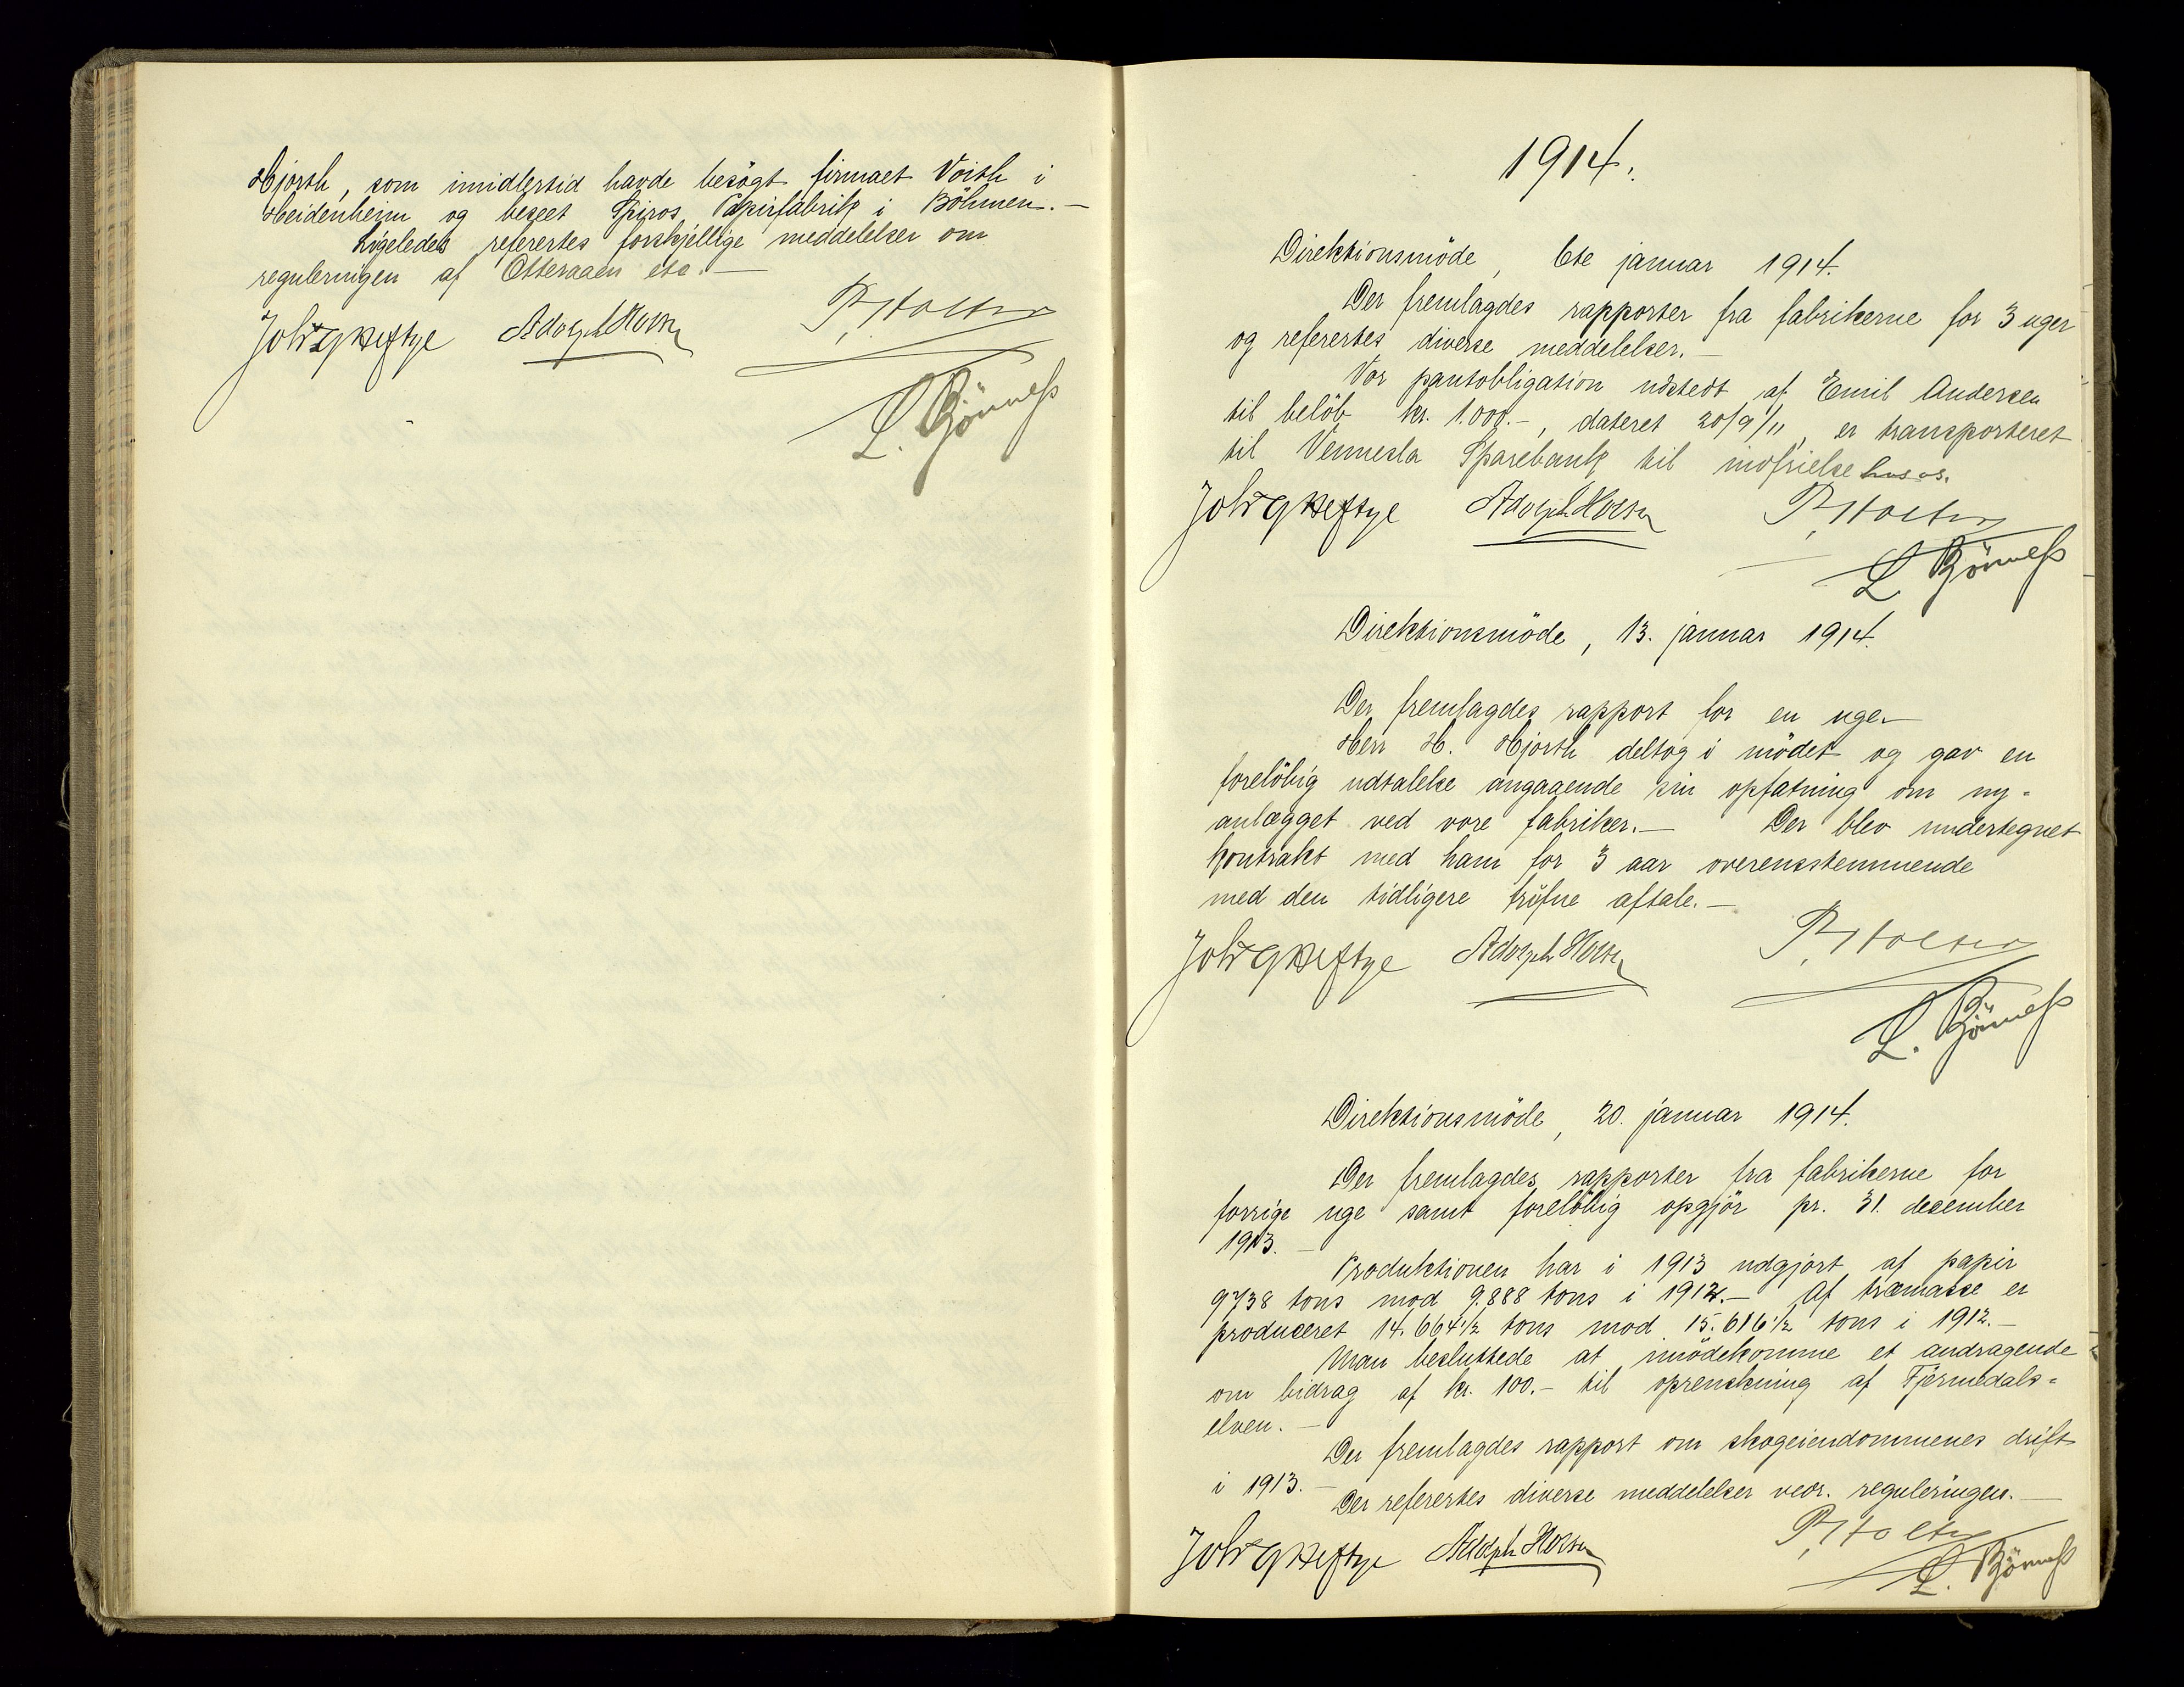 Hjorth, som imidlertid havde besögt firmaet Voith i
Heidenheim og beseet Spiros Papirfabrik i Böhmen. —
Ligeledes refereertes forskjellige meddelelser om
reguleringen af Otteraaen etc. —
Joh's G Heftye Adolph Hoest P. Holter
L. Rönneß
1914.
Direktionsmöde, 6te januar 1914.
Der fremlagdes rapporter fra fabrikerne for 3 uger
og referertes diverse meddelelser. —
Vor pantobligation udstedt af Emil Andersen
til belöb kr. 1.000.-, dateret 20/9/11, er transporteret
til Vennesla Sparebank til indfrielse hos os.
Joh's G Heftye Adolph Hoest P. Holter
L. Rönneß
Direktionsmöde, 13. januar 1914.
Der fremlagdes rapport for en uge. —
Herr H. Hjorth deltog i mödet og gav en
forelöbig udtalelse angaaende sin opfatning om ny-
anlægget ved vore fabriker. — Der blev undertegnet
kontrakt med ham for 3 aar overensstemmende
med den tidligere trufne aftale. —
Joh's G Heftye Adolph Hoest P. Holter
L. Rönneß
Direktionsmöde, 20. januar 1914.
Der fremlagdes rapporter fra fabrikerne for
forrige uge samt forelöbig opgjör pr. 31. december
1913. —
Produktionen har i 1913 udgjort af papir
9738 tons mod 9.888 tons i 1912. — Af træmasse er
produceret 14.664½ tons mod 15.616½ tons i 1912. —
Man besluttede at imödekomme et andragende
om bidrag af kr. 100.- til oprenskning af Fjermedals-
elven. —
Der fremlagdes rapport om skogeiendommenes drift
i 1913. —
Der referertes diverse meddelelser vedr. reguleringen. —
Joh's G Heftye Adolph Hoest P. Holter
L. Rönneß